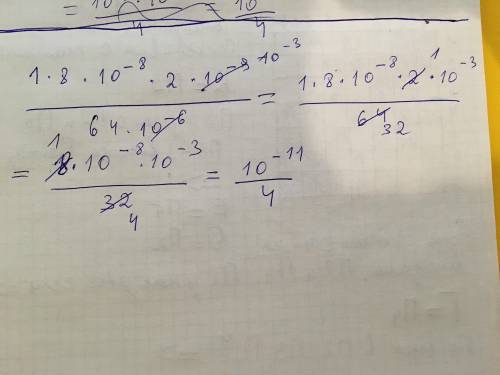 = 10 · 10 / 4 = 10 / 4
1 · 8 · 10⁻⁸ · 2 · 10⁻⁹ 10⁻³ / 64 · 10⁻⁶ = 1 · 8 · 10⁻⁸ · 2 1 · 10⁻³ / 64 32
= 1 8 · 10⁻⁸ · 10⁻³ / 32 4 = 10⁻¹¹ / 4